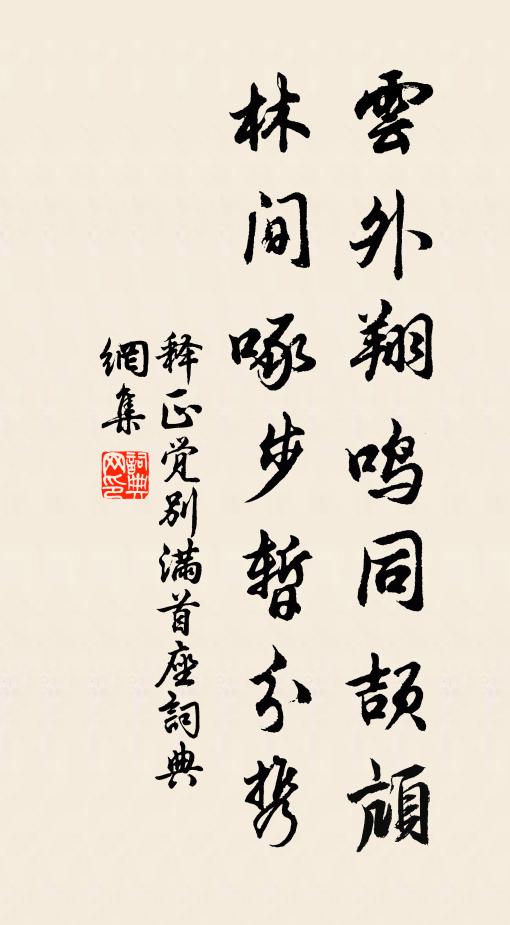 雲外翔鳴同頡頏
林间啄步暫分携
释正觉别滿首座詞典
網集
詞典网印